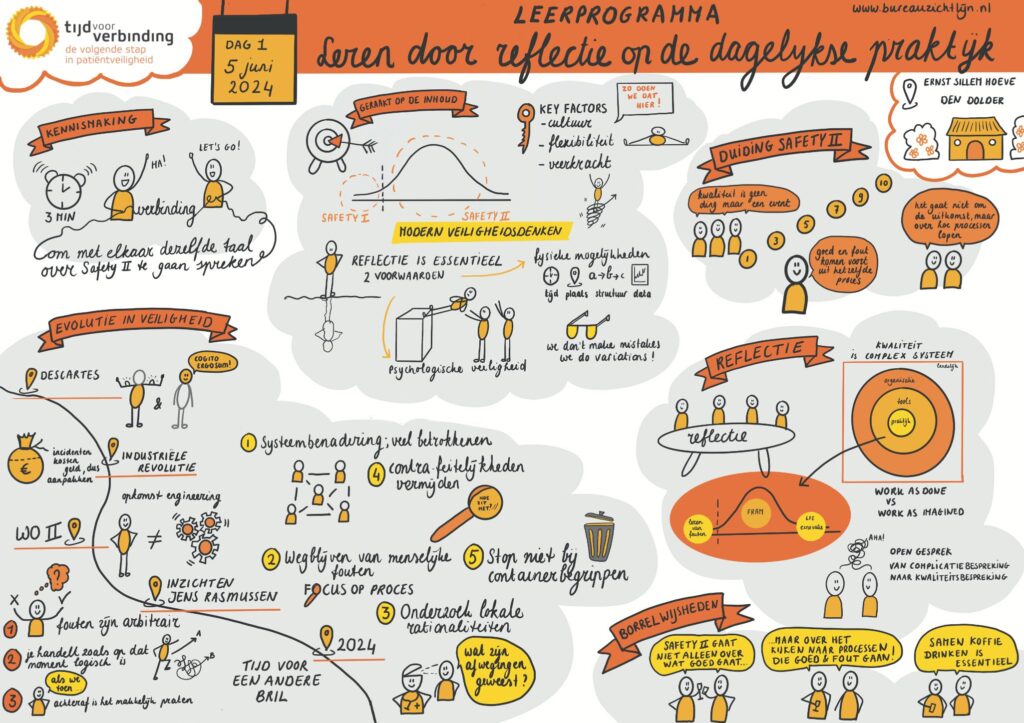 tijd voor
verbinding
de volgende stap
in patiëntveiligheid
DAG 1
5 juni
2024
LEERPROGRAMMA
www.bureauzichtlijn.nl
Leren door reflectie op de dagelijkse praktijk
ERNST SILLEM HOEVE
DEN DOLDER
KENNISMAKING
HA!
LET'S GO!
3 MIN
verbinding
om met elkaar dezelfde taal
over Safety II te gaan spreken
GERAAKT OP DE INHOUD
SAFETY I
SAFETY II
KEY FACTORS
- cultuur
- flexibiliteit
- veerkracht
ZO DOEN
WE DAT
HIER!
MODERN VEILIGHEIDSDENKEN
REFLECTIE IS ESSENTIEEL
2 VOORWAARDEN
fysieke mogelijkheden
a→b→c
tijd plaats structuur data
Psychologische veiligheid
we don't make mistakes
we do variations!
DUIDING SAFETY II
kwaliteit is geen
ding maar een event
1
3
5
7
9
10
het gaat niet om
de uitkomst, maar
over hoe processen
lopen
goed en fout
komen voort
uit hetzelfde
proces
EVOLUTIE IN VEILIGHEID
DESCARTES
COGITO
ERGO SUM!
&
€
incidenten
kosten
geld, dus
aanpakken
INDUSTRIËLE
REVOLUTIE
opkomst engineering
WO II
≠
?
X
✓
INZICHTEN
JENS RASMUSSEN
1 fouten zijn arbitrair
2 je handelt zoals op dat
moment logisch is
A
B
als we
toen
3 achteraf is het makkelijk praten
2024
TIJD VOOR
EEN ANDERE
BRIL
wat zijn
afwegingen
geweest?
1 Systeembenadering; veel betrokkenen
4 contra-feitelijkheden
vermijden
HOE
ZIT
HET?
2 Wegblijven van menselijke
fouten
FOCUS OP PROCES
5 Stop niet bij
containerbegrippen
3 Onderzoek lokale
rationaliteiten
REFLECTIE
reflectie
KWALITEIT
IS COMPLEX SYSTEEM
organische
tools
praktijk
leren
van
fouten
FRAM
WORK AS DONE
VS
WORK AS IMAGINED
AHA!
OPEN GESPREK
VAN COMPLICATIEBESPREKING
NAAR KWALITEITSBESPREKING
BORRELWIJSHEDEN
SAFETY II GAAT
NIET ALLEEN OVER
WAT GOED GAAT..
...MAAR OVER HET
KIJKEN NAAR PROCESSEN
DIE GOED & FOUT GAAN!
SAMEN KOFFIE
DRINKEN IS
ESSENTIEEL